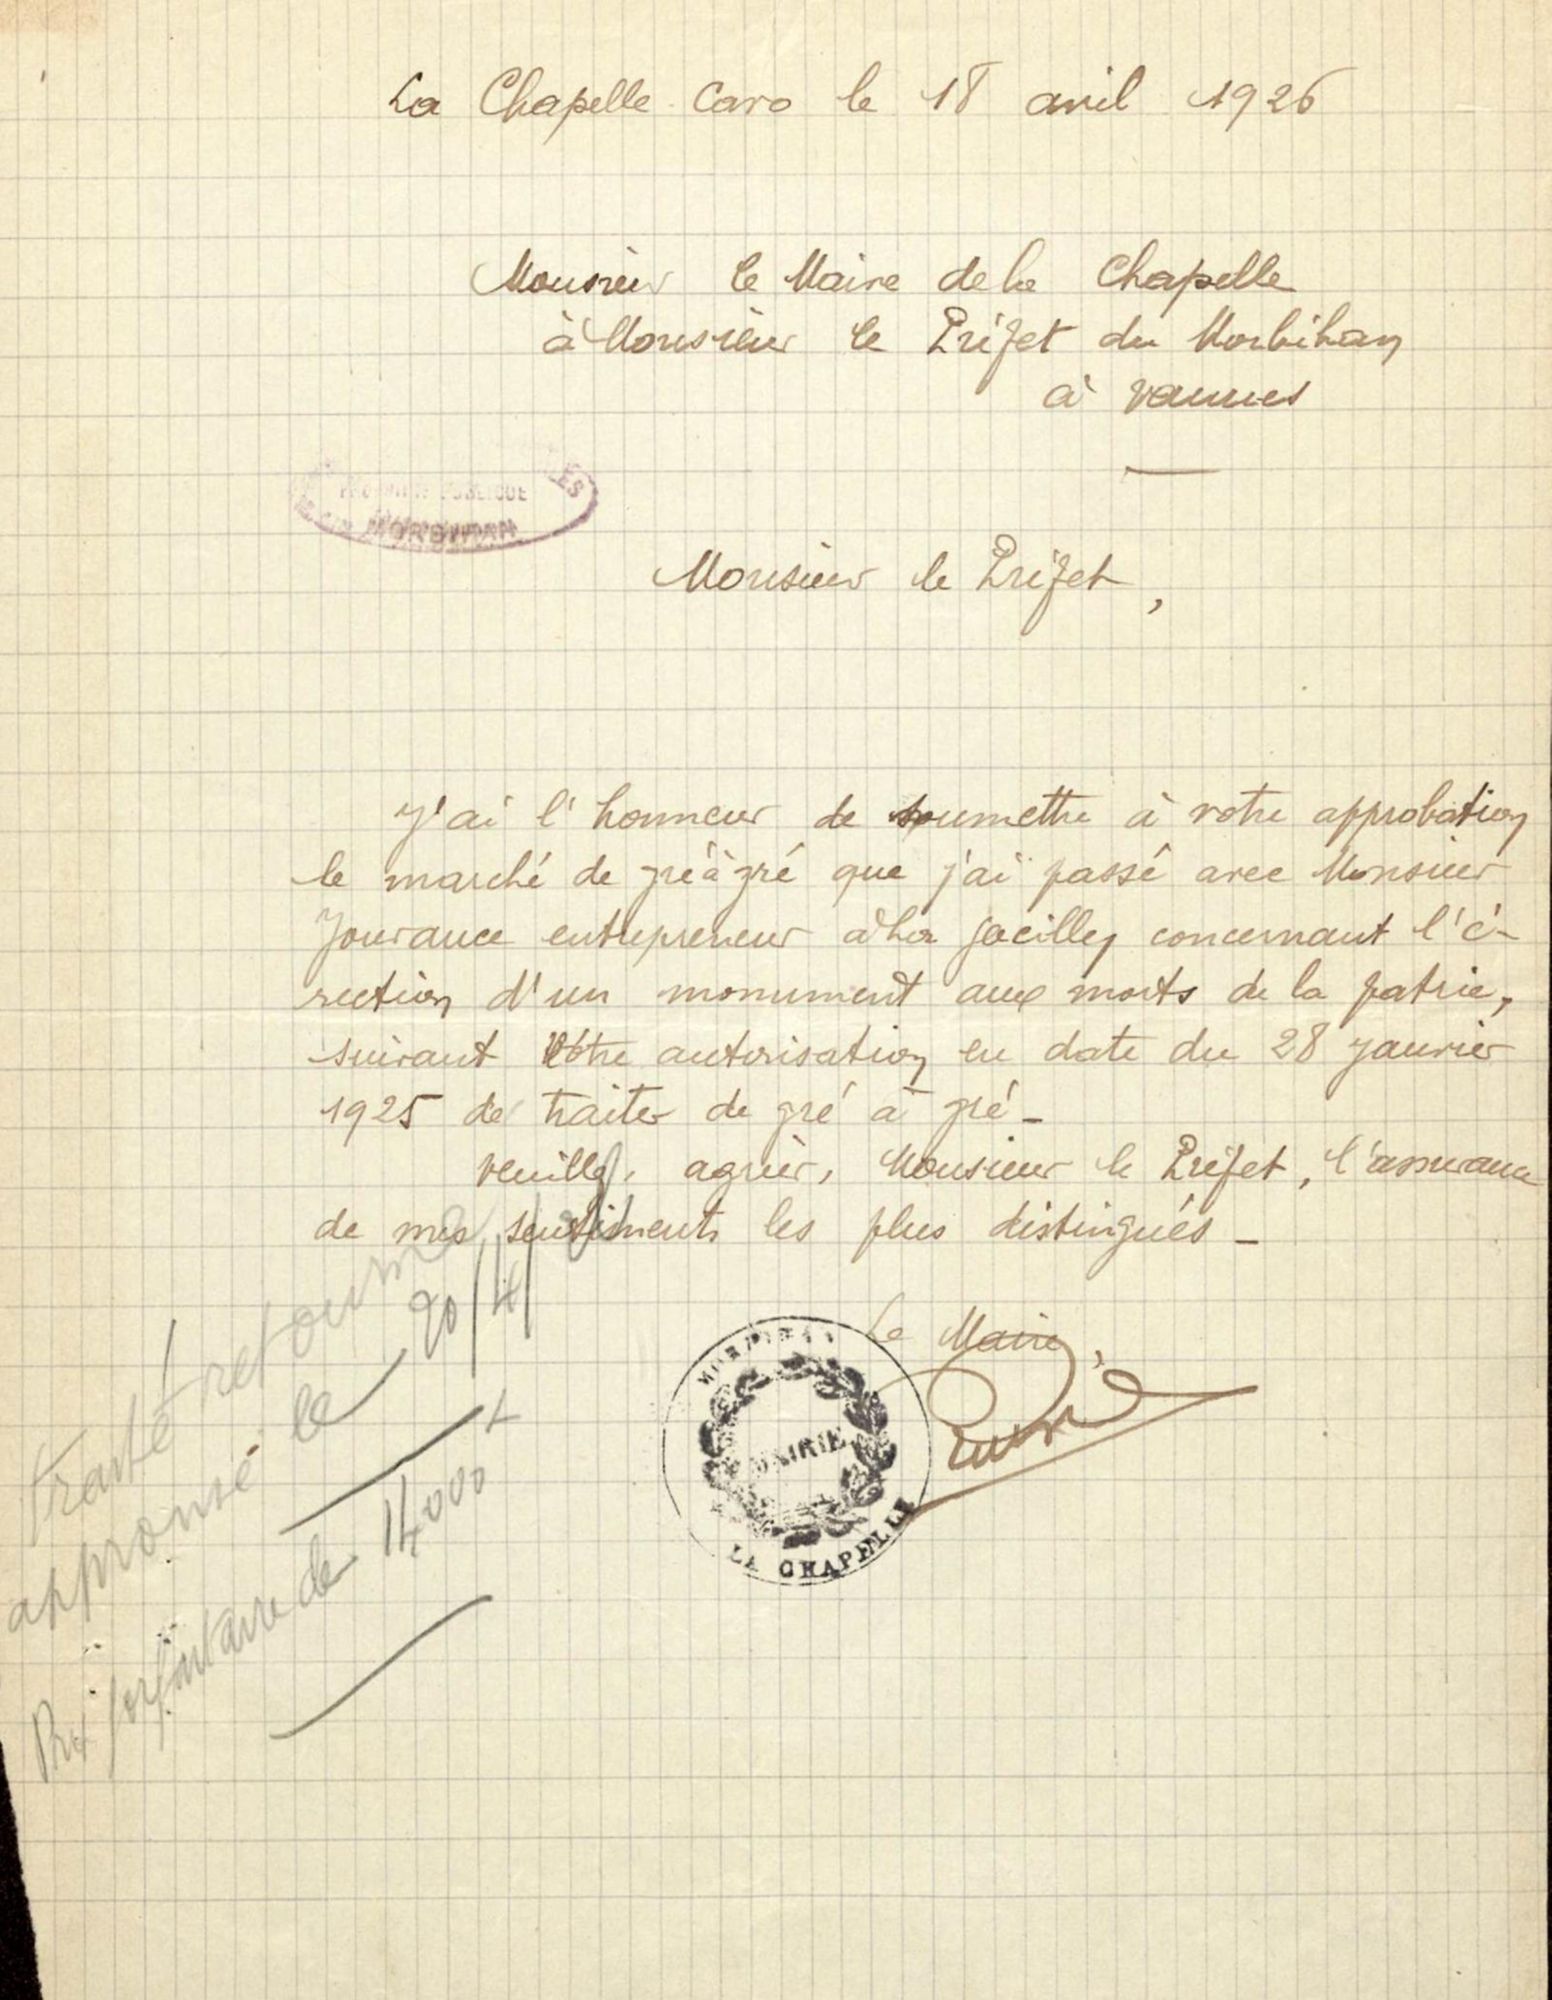 La Chapelle Caro le 18 avril 1926
Monsieur le Maire de la Chapelle
à Monsieur le Préfet du Morbihan
à Vannes
PUBLIQUE
MORBIHAN
Monsieur le Préfet,
J'ai l'honneur de soumettre à votre approbation
le marché de gré à gré que j'ai passé avec Monsieur
Jourance entrepreneur à La Gacilly concernant l'é-
rection d'un monument aux morts de la patrie,
suivant votre autorisation en date du 28 janvier
1925 de traiter de gré à gré -
Veuillez, agréer, Monsieur le Préfet, l'assurance
de mes sentiments les plus distingués -
Le Maire,
MORBIHAN
MAIRIE
LA CHAPELLE
traité retourné
approuvé le 20/4/
Prix forfaitaire de 14000